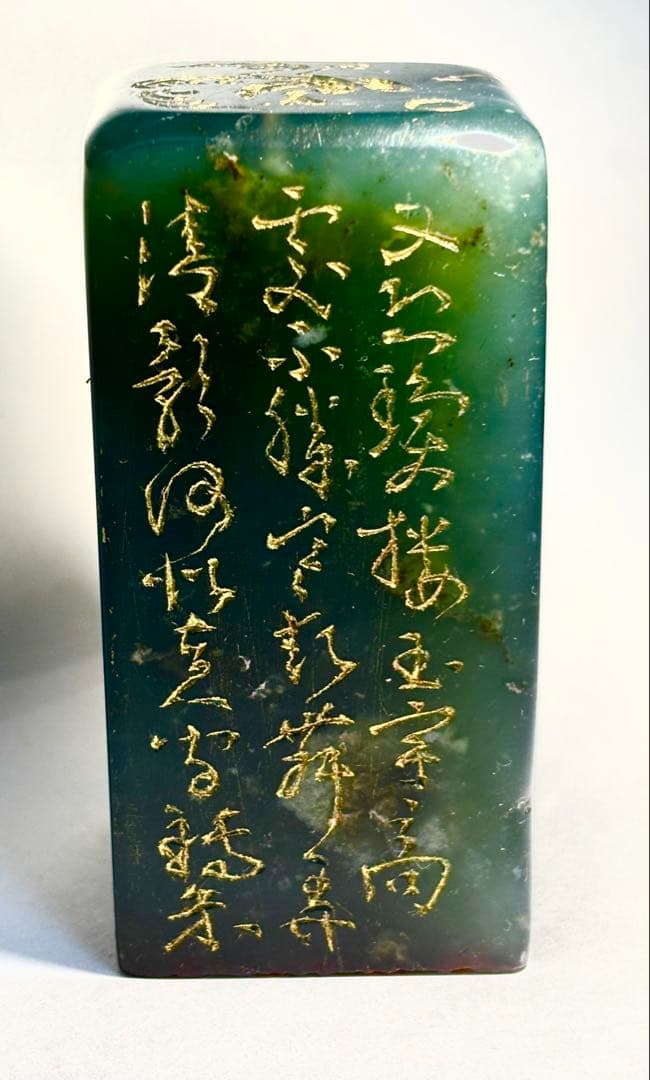 又恐瓊樓玉宇高
處不勝寒起舞弄
清影何似在人間轉朱